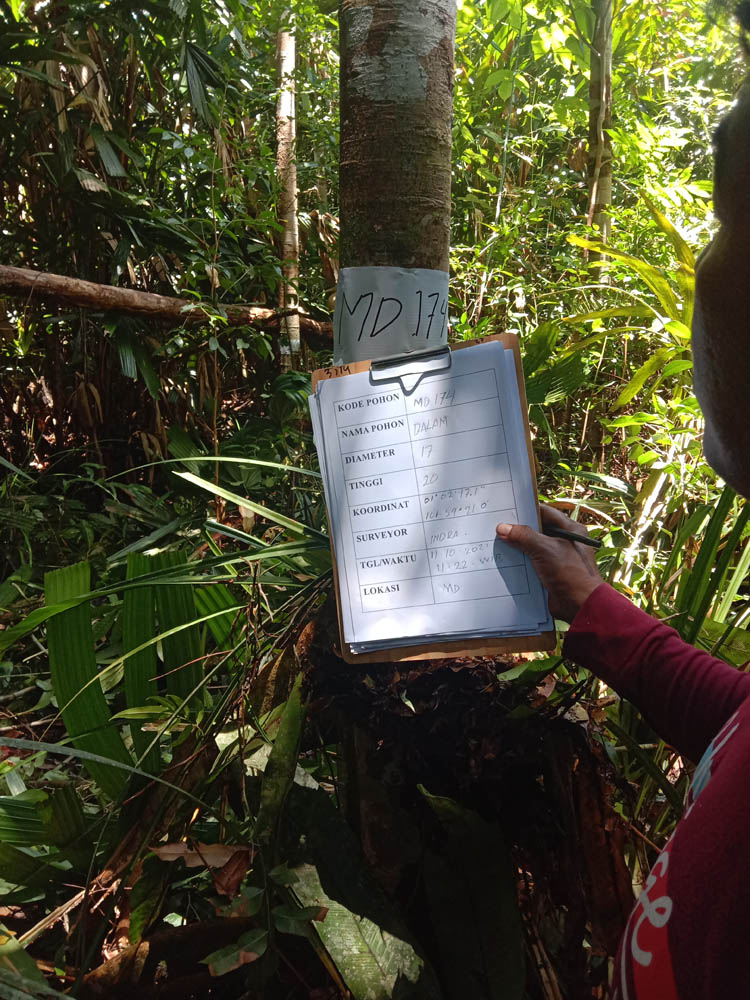 MD 174
KODE POHON MD 174
NAMA POHON DALAM
DIAMETER 17
TINGGI 20
KOORDINAT 01° 02' 17.1"
101° 59' 21.0"
SURVEYOR INDRA.
TGL/WAKTU 11.10.2021
11.22 WIB
LOKASI MD